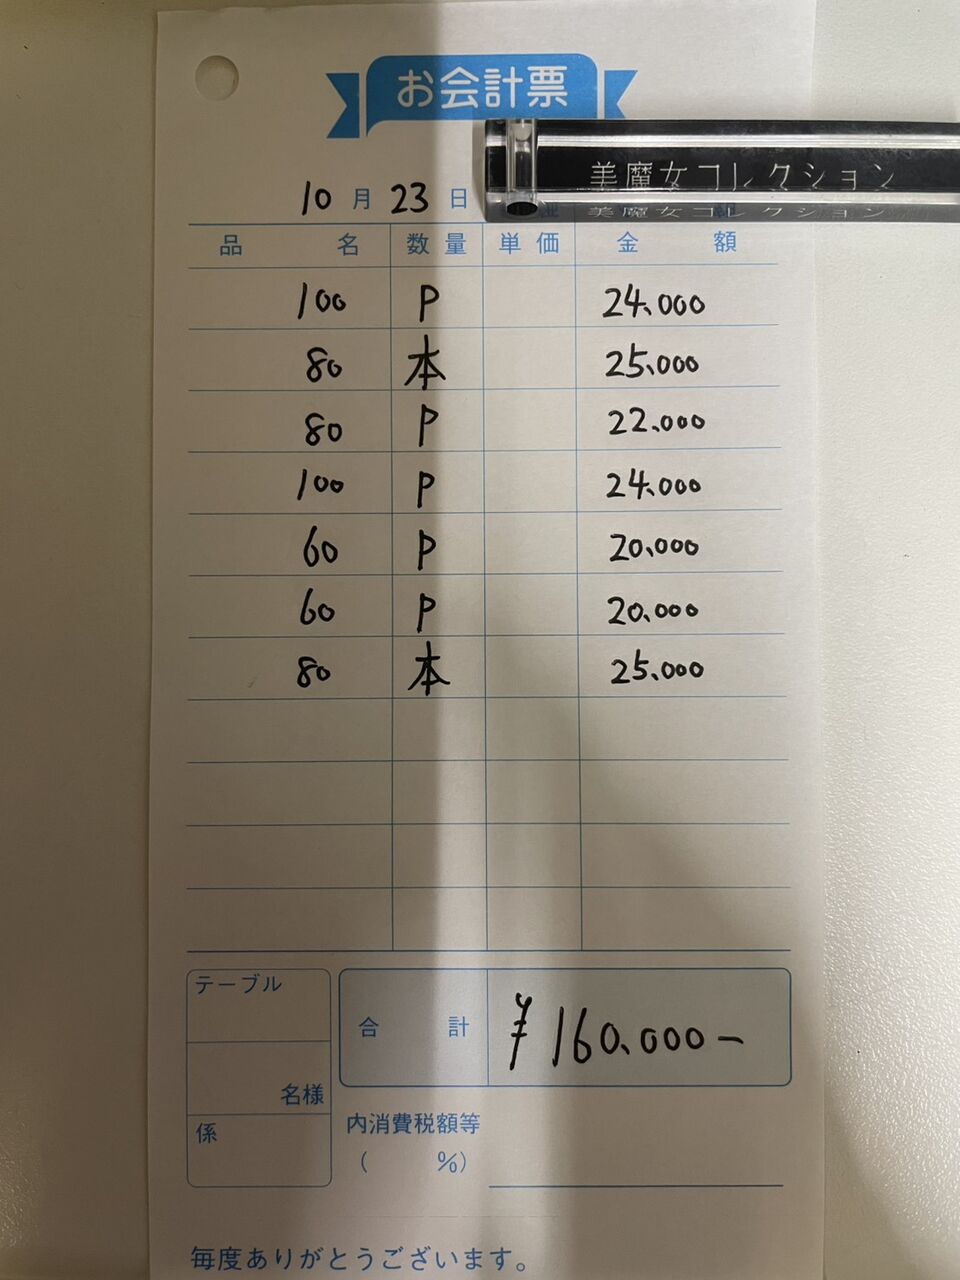 お会計票
美魔女コレクション
美魔女コレクション
10月23日
品名 数量 単価 金額
100 P 24.000
80 本 25.000
80 P 22.000
100 P 24.000
60 P 20.000
60 P 20.000
80 本 25.000
テーブル
名様
係
合計 ¥160.000-
内消費税額等
( %)
毎度ありがとうございます。